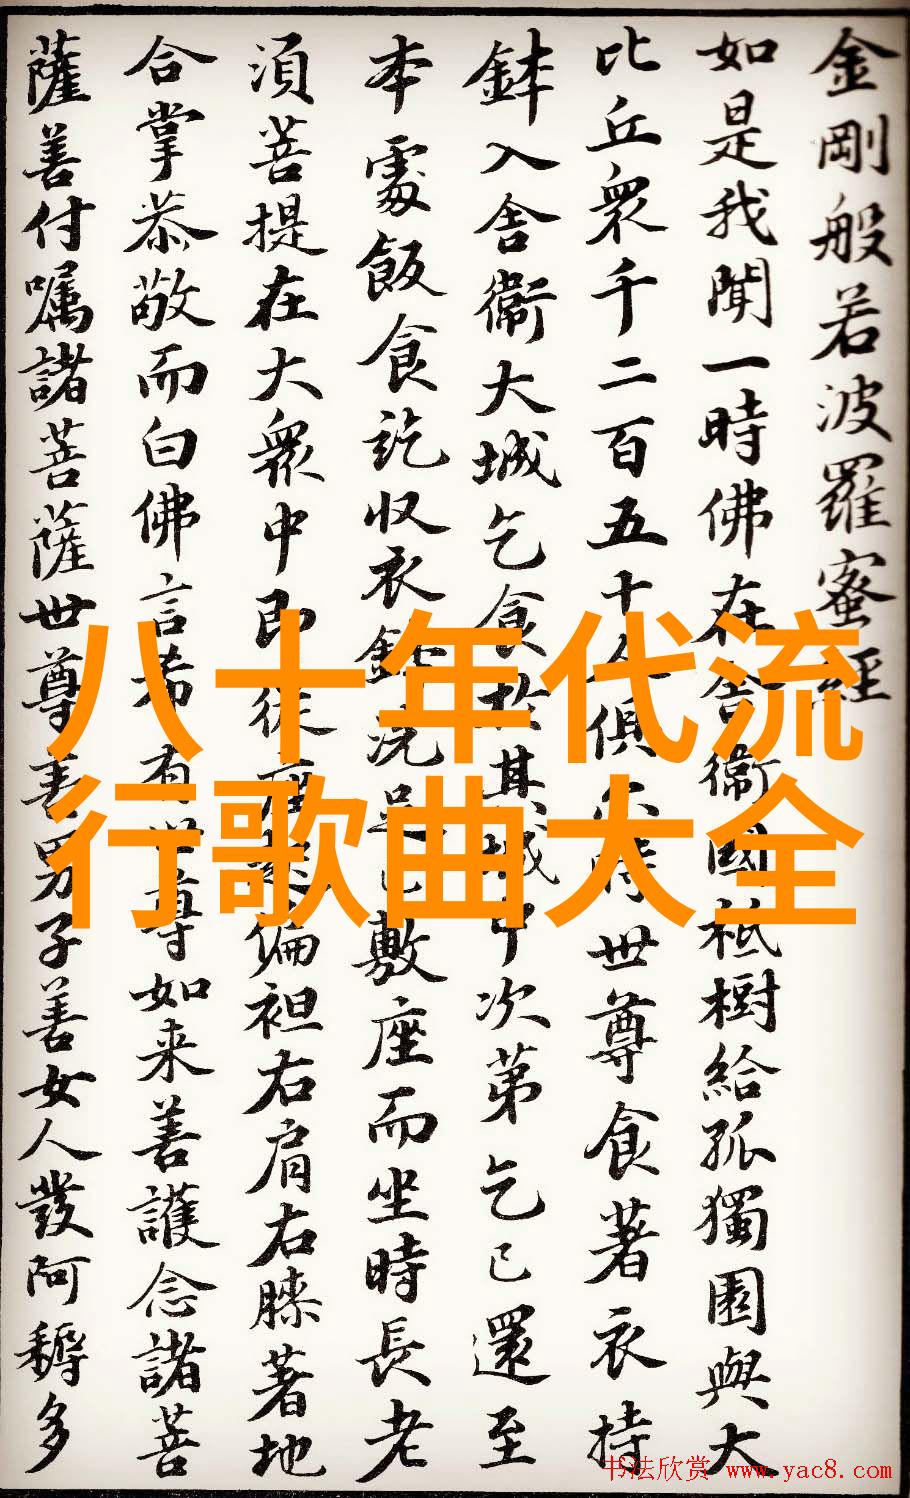 金剛般若波羅蜜經
如是我聞一時佛在舍衞國祇樹給孤獨園與大
比丘衆千二百五十人俱尒時世尊食著衣持
鉢入舍衞大城乞食於其城中次第乞已還至
本處飯食訖収衣鉢洗足已敷座而坐時長老
湏菩提在大衆中即從座起偏袒右肩右膝著地
合掌恭敬而白佛言希有世尊如来善護念諸菩
薩善付嘱諸菩薩世尊善男子善女人發阿耨多
八十年代流
行歌曲大全
书法欣赏 www.yac8.com